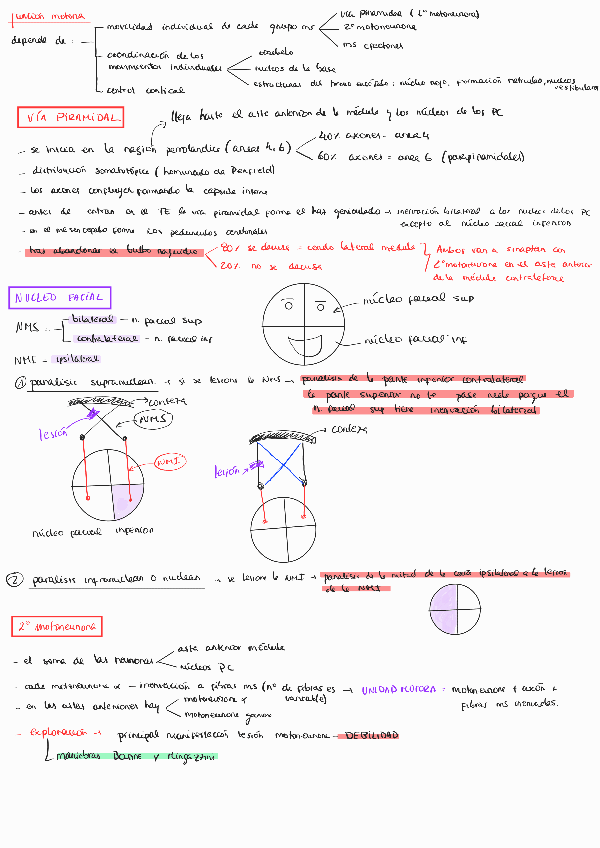 función motora
depende de:
- movilidad individual de cada grupo ms
vía piramidal (1ª motoneurona)
2ª motoneurona
ms efectores
- coordinación de los movimientos individuales
cerebelo
núcleos de la base
estructuras del tronco encéfalo: núcleo rojo, formación reticular, núcleos vestibulares
- control cortical
VÍA PIRAMIDAL
llega hasta el asta anterior de la médula y los núcleos de los PC
- se inicia en la región perrolándica (áreas 4, 6)
40% axones = área 4
60% axones = área 6 (parapiramidales)
- distribución somatotópica (homúnculo de Penfield)
- los axones confluyen formando la cápsula interna
- antes de entrar en el TE la vía piramidal forma el haz geniculado → inervación bilateral a los núcleos de los PC
excepto al núcleo facial inferior
- en el mesencéfalo forma los pedúnculos cerebrales
- tras abandonar el bulbo raquídeo
80% se decusa - cordón lateral médula
20% no se decusa
Ambos van a sinaptar con
2ª motoneurona en el asta anterior
de la médula contralateral
NÚCLEO FACIAL
NMS
bilateral - n. facial sup
contralateral - n. facial inf
NMI - ipsilateral
núcleo facial sup
núcleo facial inf
① parálisis supranuclear → si se lesiona la NMS → parálisis de la parte inferior contralateral
la parte superior no le pasa nada porque el
n. facial sup tiene inervación bilateral
corteza
NMS
lesión
NMI
núcleo facial inferior
corteza
lesión
② parálisis infranuclear o nuclear → se lesiona la NMI → parálisis de la mitad de la cara ipsilateral a la lesión
de la NMI
2ª motoneurona
- el soma de las neuronas
asta anterior médula
núcleos PC
- cada motoneurona α - inervación a fibras ms (nº de fibras es variable) → UNIDAD MOTORA = motoneurona + axón + fibras ms inervadas.
- en las astas anteriores hay
motoneurona α
motoneurona gamma
- exploración → principal manifestación lesión motoneurona - DEBILIDAD
maniobras Barré y Mingazzini